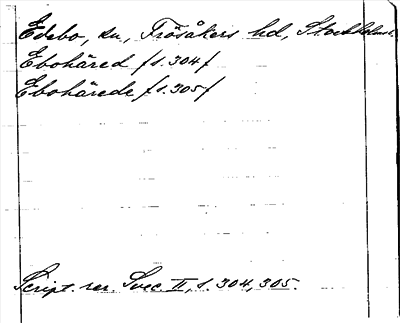 Edebo, sn, Frösåkers hd, Stockholms
Ebohäred /s. 304/
Ebohärede /s. 305/
Script. rer. Svec. II, s. 304, 305.